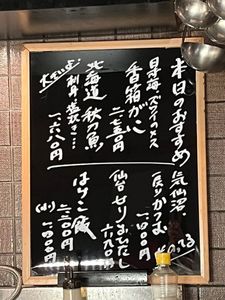 本日のおすすめ
日本海ズワイメス
香箱がに
二、七五〇円
北海道 秋刀魚
刺身 塩焼き…
一、六八〇円
気仙沼
戻りかつお
一、八〇〇円
仙台せりおひたし
六八〇円
はらこ飯
二、二〇〇円
(小)一、八〇〇円